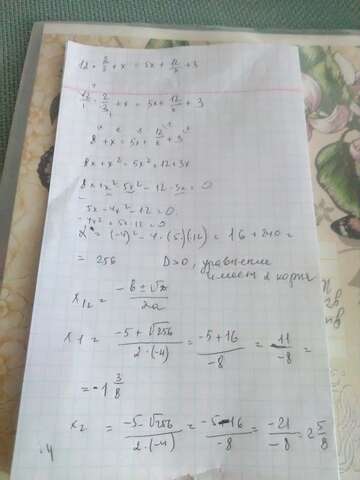 12 · 2/3 + x = 5x + 12/x + 3
12/1 · 2/3 + x = 5x + 12/x + 3
8 + x = 5x + 12/x + 3
8x + x² - 5x² = 12 + 3x
8x + x² - 5x² - 12 - 3x = 0
5x - 4x² - 12 = 0
-4x² + 5x - 12 = 0
= (-4)² - 4 · (5)(-12) = 16 + 240 =
= 256 D>0, уравнение
имеет 2 корня
x12 = (-b ± √D)/2a
x1 = (-5 + √256)/(2 · (-4)) = (-5 + 16)/(-8) = 11/(-8) =
= -1 3/8
x2 = (-5 - √256)/(2 · (-4)) = (-5 - 16)/(-8) = (-21)/(-8) = 2 5/8